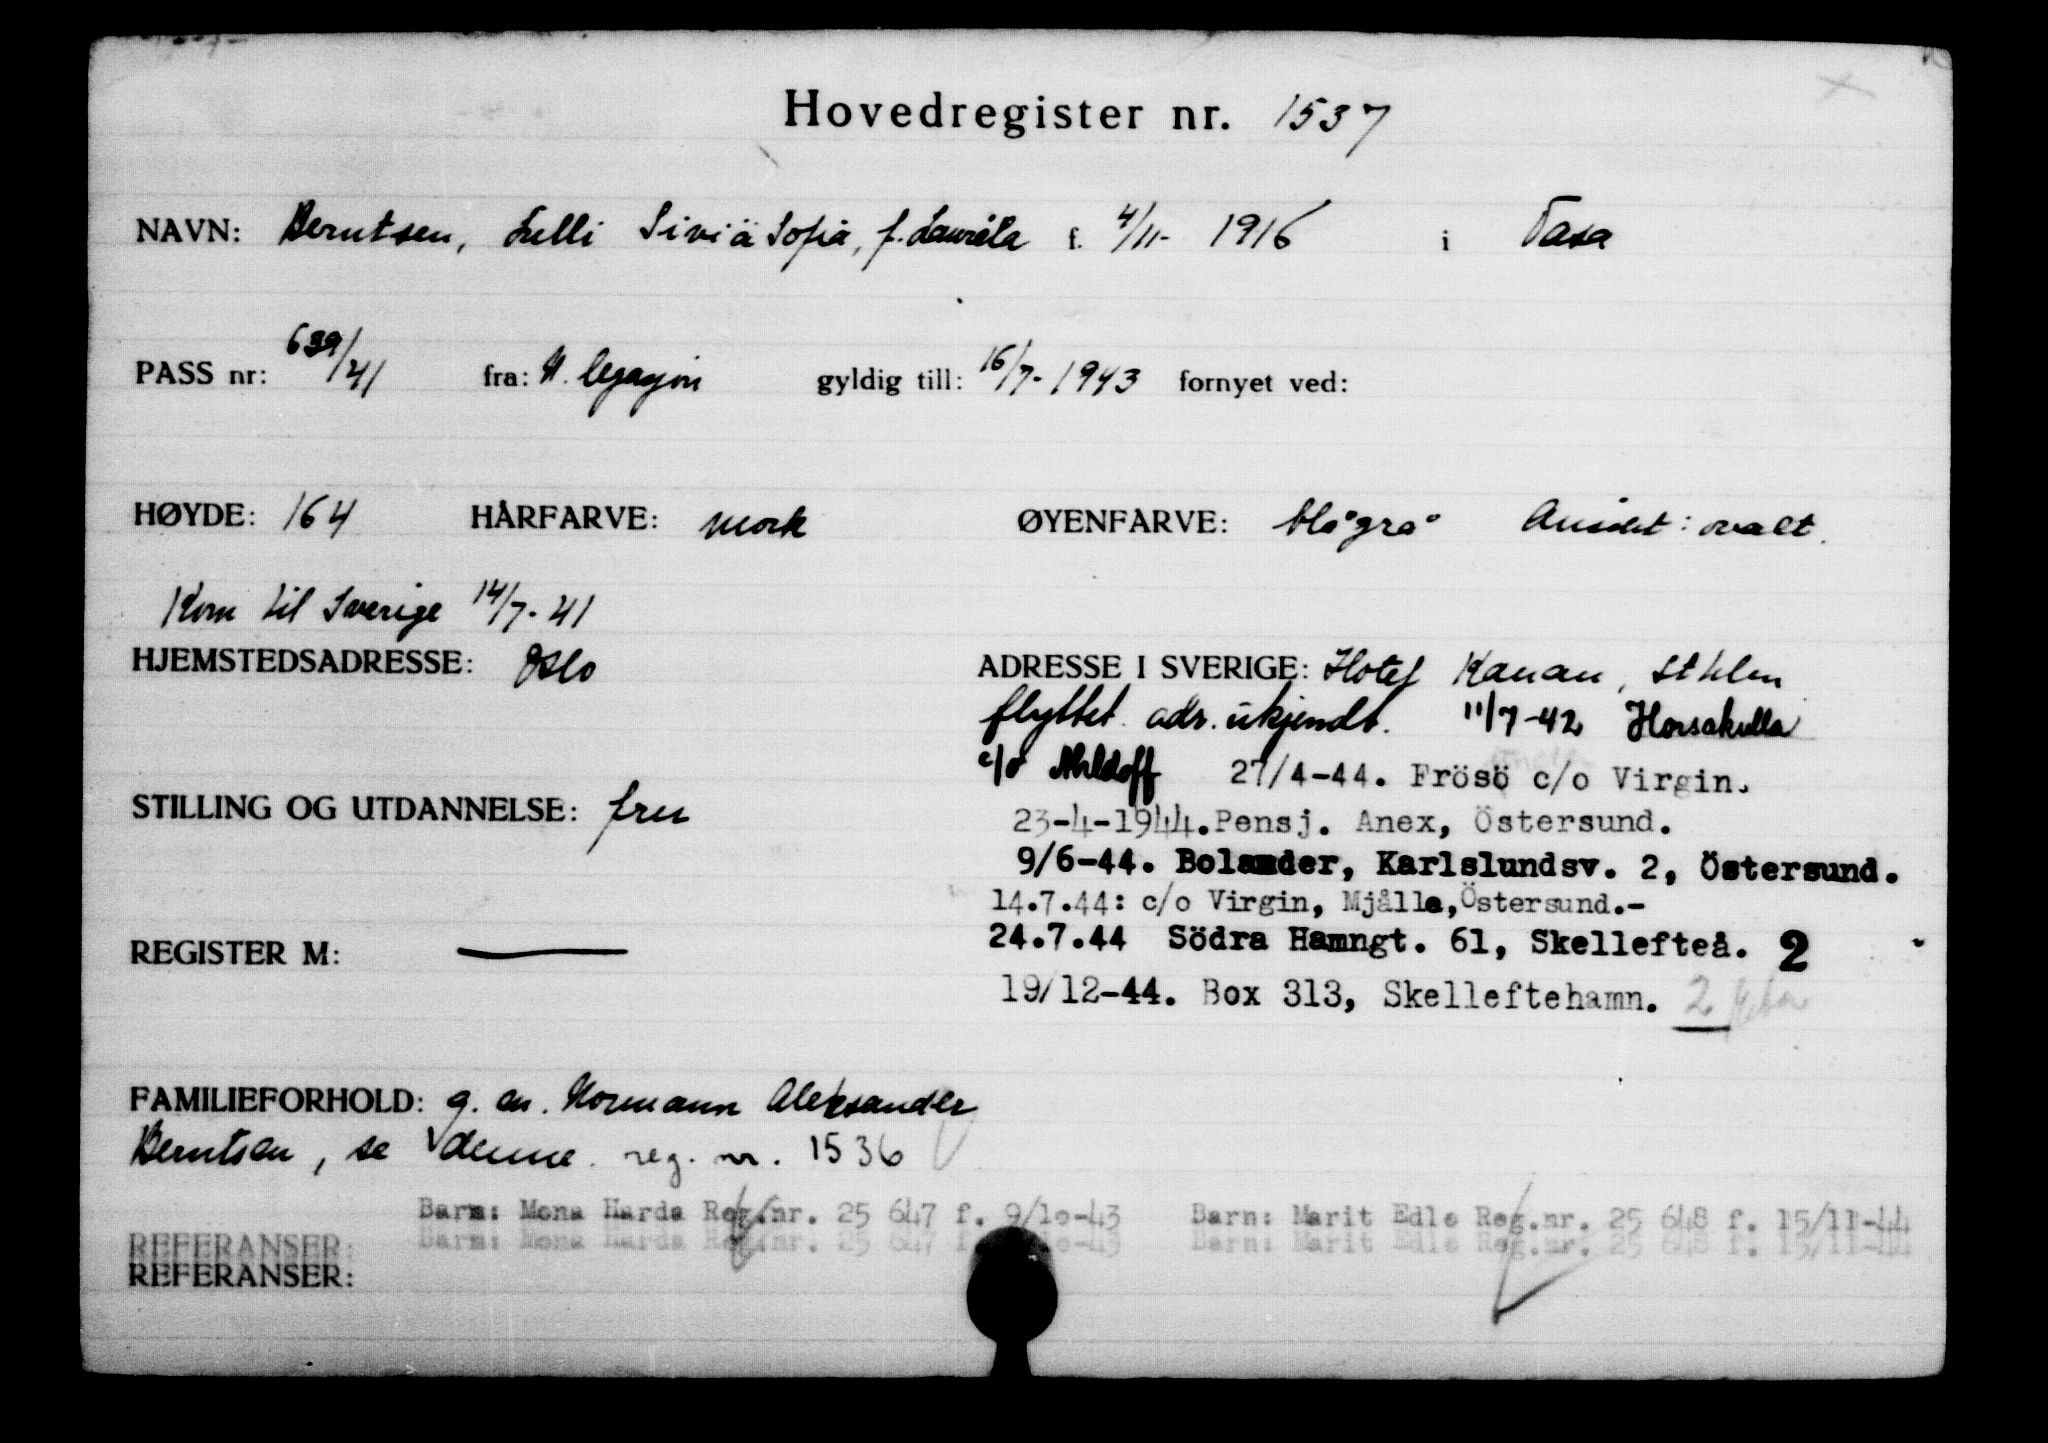 Hovedregister nr. 1537
NAVN: Berntsen, Lulli Siviä Sofia, f. Lauréla f. 4/11- 1916 i Vasa
PASS nr: 639/41 fra: N. legasjon gyldig till: 16/7-1943 fornyet ved:
HØYDE: 164 HÅRFARVE: mørk ØYENFARVE: blågrå Ansikt: ovalt.
Kom til Sverige 14/7-41
HJEMSTEDSADRESSE: Oslo
ADRESSE I SVERIGE: Hotel Kanan, Sthlm
flyttet. adr. ukjendt. 11/7-42 Horsakulla
c/o 27/4-44. Frösö c/o Virgin.
STILLING OG UTDANNELSE: fru
23-4-1944. Pensj. Anex, Östersund.
9/6-44. Bolander, Karlslundsv. 2, Östersund.
14.7.44: c/o Virgin, Mjälle, Östersund.-
24.7.44 Södra Hamngt. 61, Skellefteå. 2
REGISTER M: —
19/12-44. Box 313, Skelleftehamn. 2
FAMILIEFORHOLD: g. m. Normann Aleksander
Berntsen, se denne. reg. nr. 1536
Barn: Mona Harda Reg.nr. 25 647 f. 9/10-43 Barn: Marit Edle Reg.nr. 25 648 f. 15/11-44
REFERANSER: